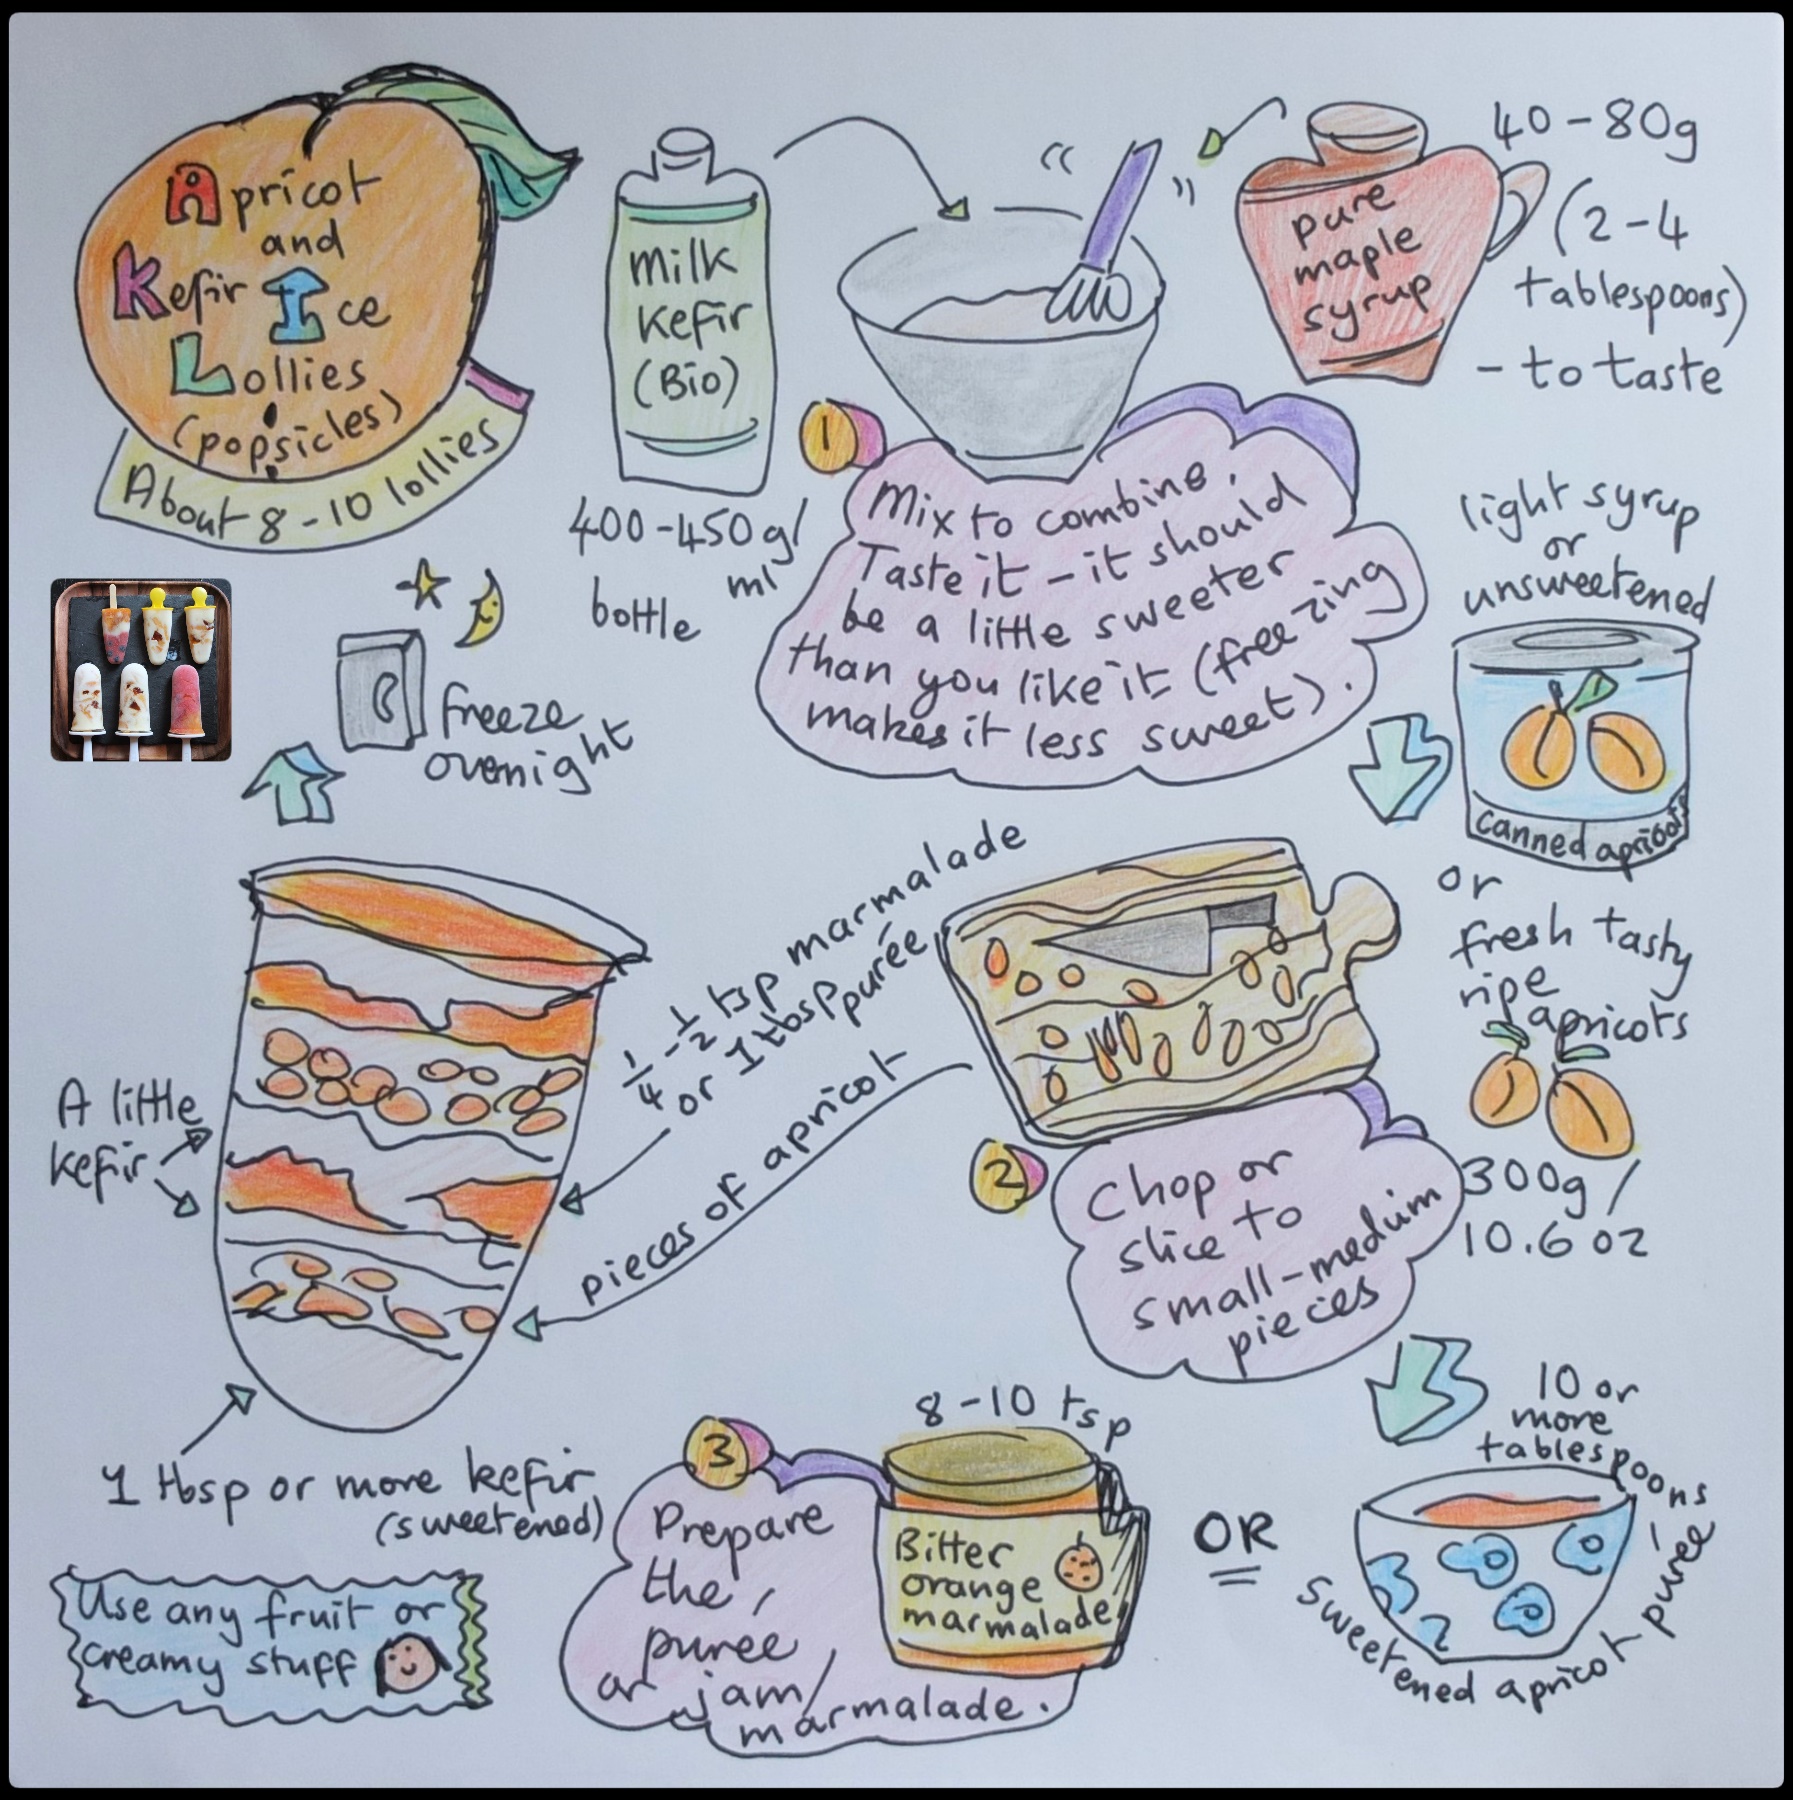 Apricot
and
Kefir Ice
Lollies
(popsicles)
About 8-10 lollies
milk
kefir
(Bio)
400-450g/
ml
bottle
pure
maple
syrup
40-80g
(2-4
tablespoons)
- to taste
1
Mix to combine.
Taste it - it should
be a little sweeter
than you like it (freezing
makes it less sweet).
light syrup
or
unsweetened
canned apricots
or
fresh tasty
ripe
apricots
300g/
10.6 oz
2
Chop or
slice to
small-medium
pieces
10 or
more
tablespoons
sweetened apricot purée
OR
8-10 tsp
Bitter
orange
marmalade
3
Prepare
the
purée
or jam/
marmalade.
1/4-1/2 tsp marmalade
or 1 tbsp purée
pieces of apricot
A little
kefir
1 tbsp or more kefir
(sweetened)
freeze
overnight
Use any fruit or
creamy stuff